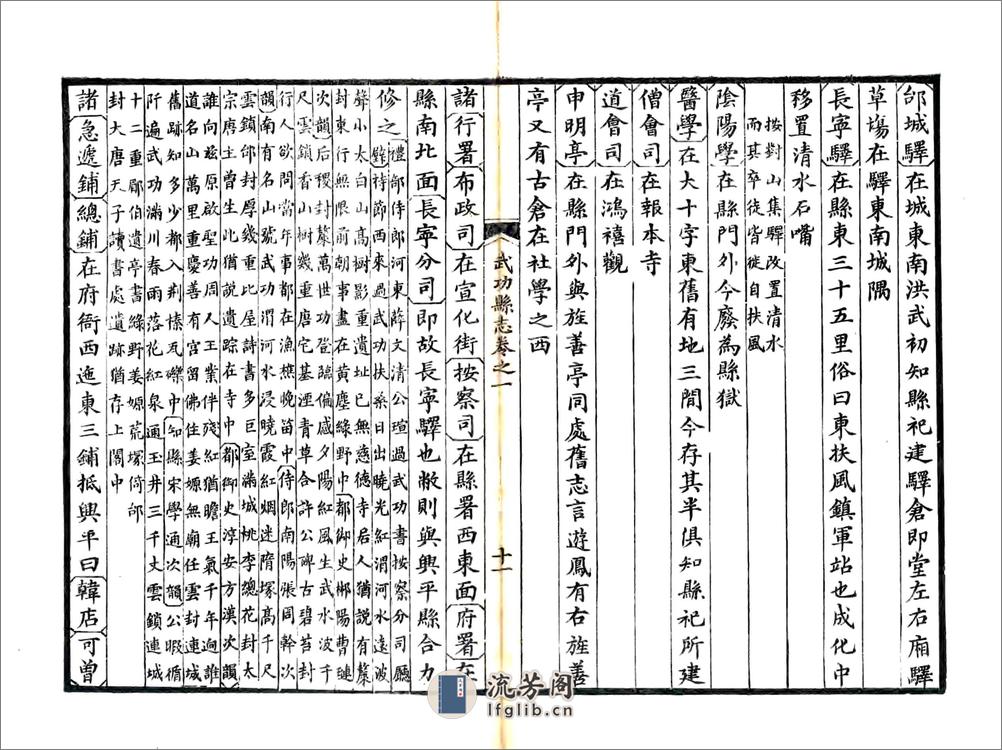 邰城驛在城東南洪武初知縣祀建驛倉即堂左右廂驛
草塲在驛東南城隅
長寧驛在縣東三十五里俗曰東扶風鎮軍站也成化中
移置清水石嘴
按對山集驛改置清水
而其卒徒皆徙自扶風
陰陽學在縣門外今廢為縣獄
醫學在大十字東舊有地三間今存其半俱知縣祀所建
僧會司在報本寺
道會司在鴻禧觀
申明亭在縣門外與旌善亭同處舊志言遊鳳有右旌善
亭又有古倉在社學之西
武功縣志卷之一
十一
諸行署布政司在宣化街按察司在縣署西東面府署在
縣南北面長寧分司即故長寧驛也敝則與興平縣合力
修之
禮部侍郎河東薛文清公瑄過武功書按察分司廳
壁持節西來過武功扶桑日出曉光紅渭河水遠波
聲小太白山高樹影重遺址已無慈德寺居人猶説有藁
封東行無限前朝事盡在黃塵綠野中都御史郴陽曹璉
次韻后稷封藁萬世功登臨偏感夕陽紅風生武水波千
尺雲鎖香山樹幾重唐宅基湮青草合許公碑古碧苔封
行人欲問當年事都在漁樵晚笛中侍郎南陽張同幹次
韻南有名山號武功渭河水浸曉霞紅烟迷隋塚髙千尺
雲鎖邰封厚幾重比屋詩書多巨室滿城桃李總花封太
宗唐主曾生此猶説遺踪在寺中都御史淳安方漢次韻
誰向兹原啟聖功周人王業伴殘紅猶瞻王氣千年迥誰
道名山萬里重慶善有宫留佛住姜嫄無廟任雲封連城
舊跡知多少都入荆榛瓦礫中知縣宋學通次韻公暇循
阡遍武功滿川春雨落花紅泉通玉井三千丈雲鎖連城
十二重郿伯遺亭書綠野姜嫄荒塚倚邰
封大唐天子讀書處遺跡猶存上閣中
諸急遞鋪總鋪在府衙西迤東三鋪抵興平曰韓店可曽
流芳閣
lfglib.cn